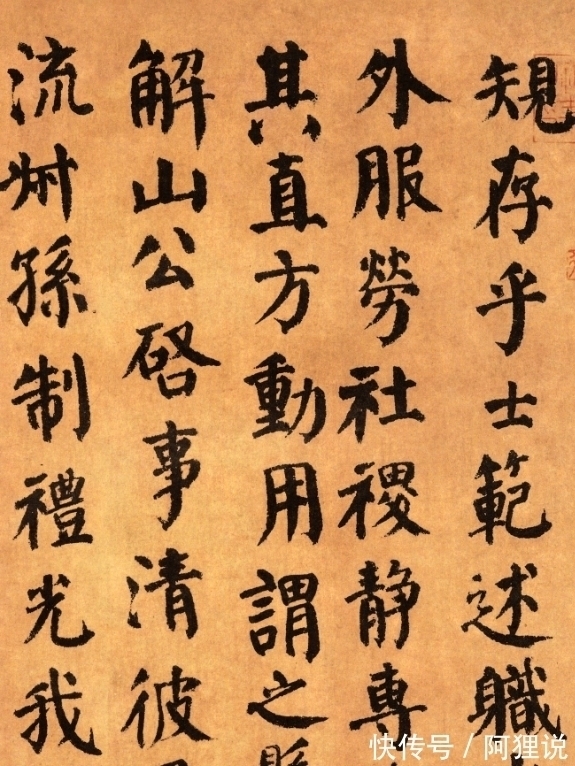 規存乎士範述職
外服勞社稷静專
其直方動用謂之
解山公啓事清彼
流叔孫制禮光我
快传号/阿狸说